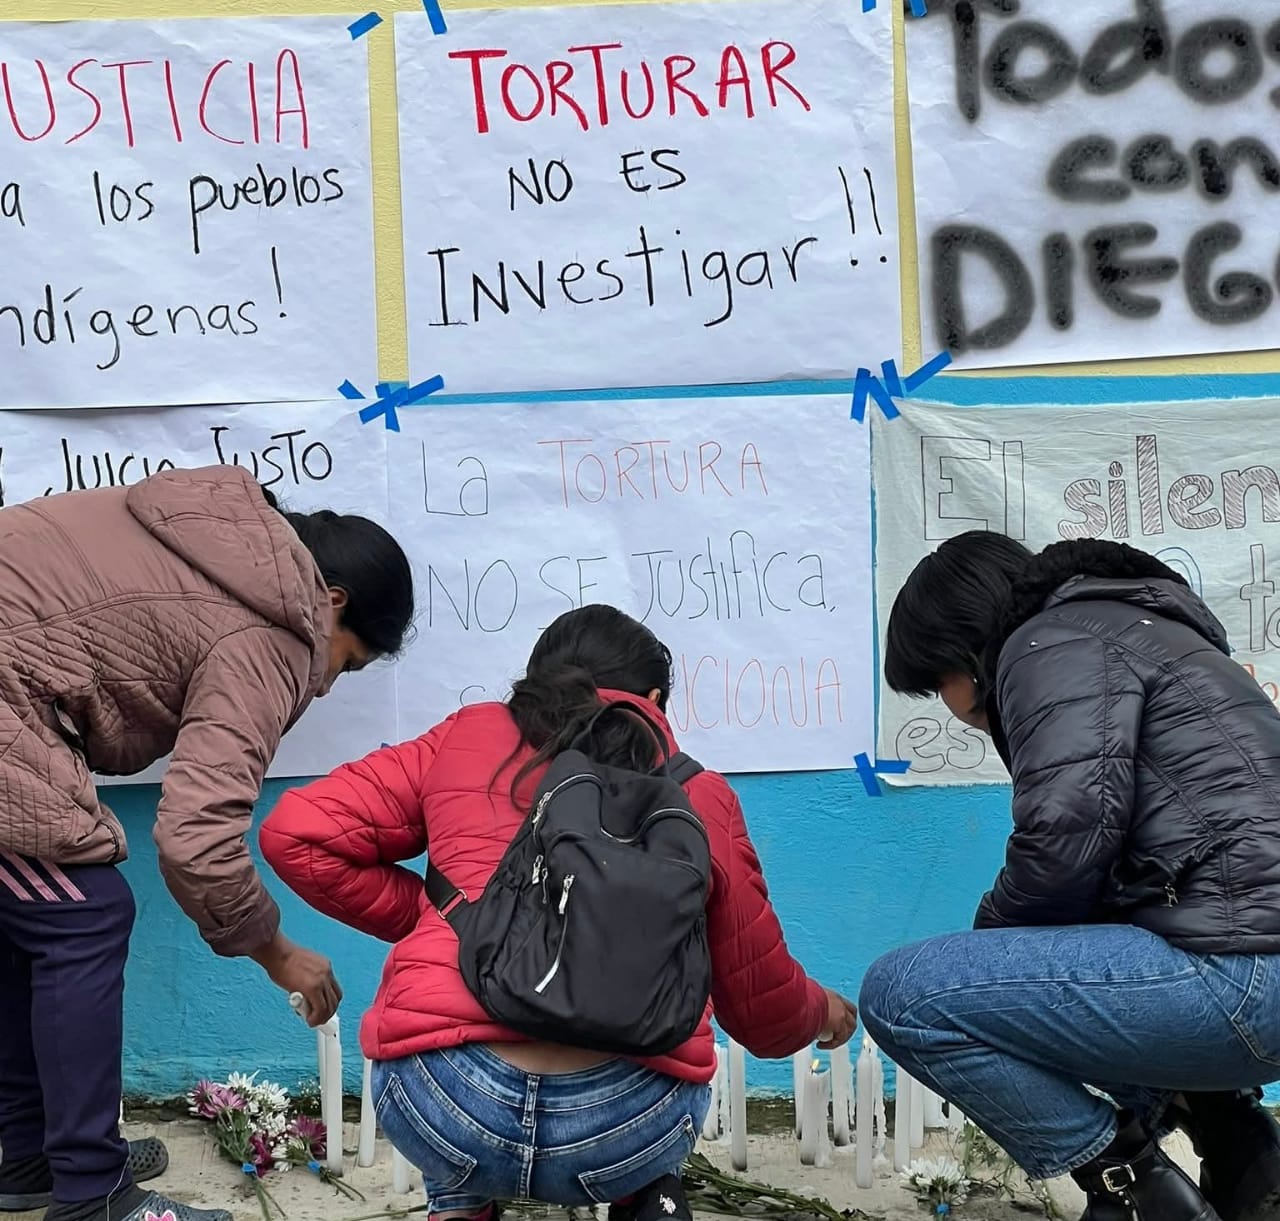 USTICIA
a los pueblos
ndígenas!
TORTURAR
NO ES
Investigar!!
Todos
con
DIEG
Juicio Justo
La TORTURA
NO SE Justifica,
NCIONA
El silen
es